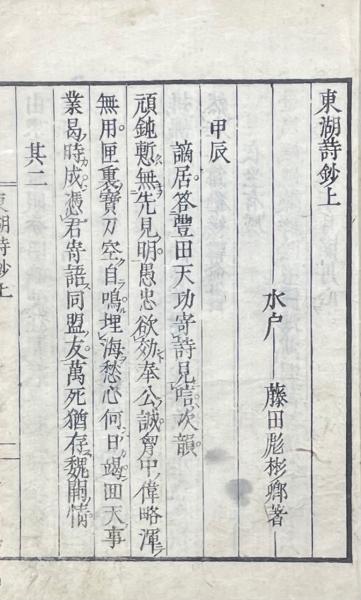 東湖詩鈔上
水戶 藤田彪彬卿著
甲辰
謫居答豐田天功寄詩見唁次韻
頑鈍慙無先見明愚忠欲効奉公誠胷中偉略渾
無用匣裏寶刀空自鳴埋海愁心何日竭回天事
業曷時成憑君寄語同盟友萬死猶存魏闕情
其二
東湖詩鈔上